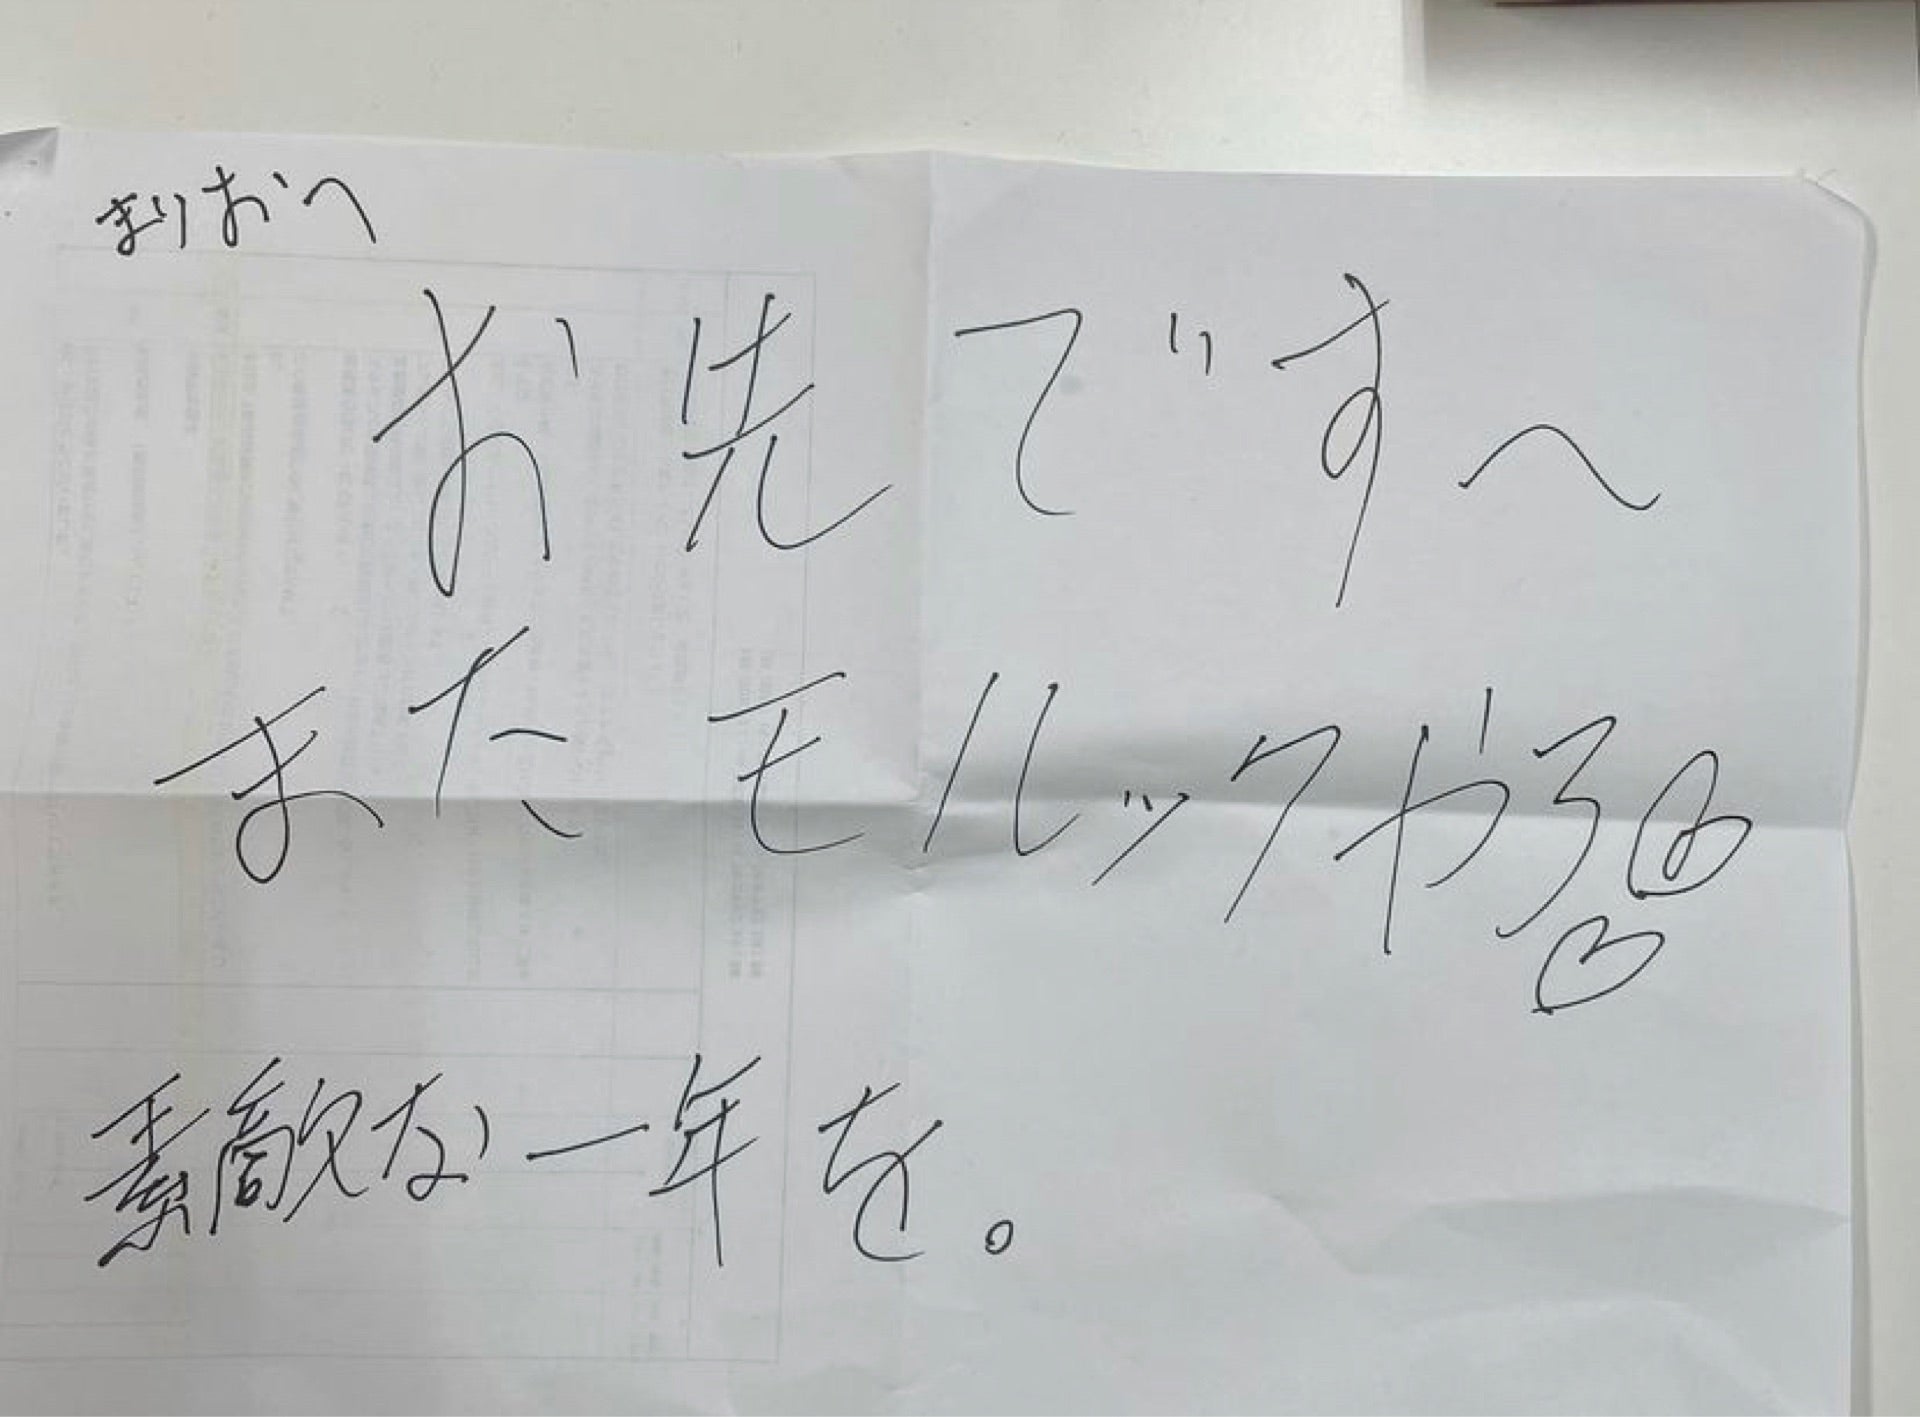 まりおへ
お先です〜
またモルックやろ
素敵な一年を。